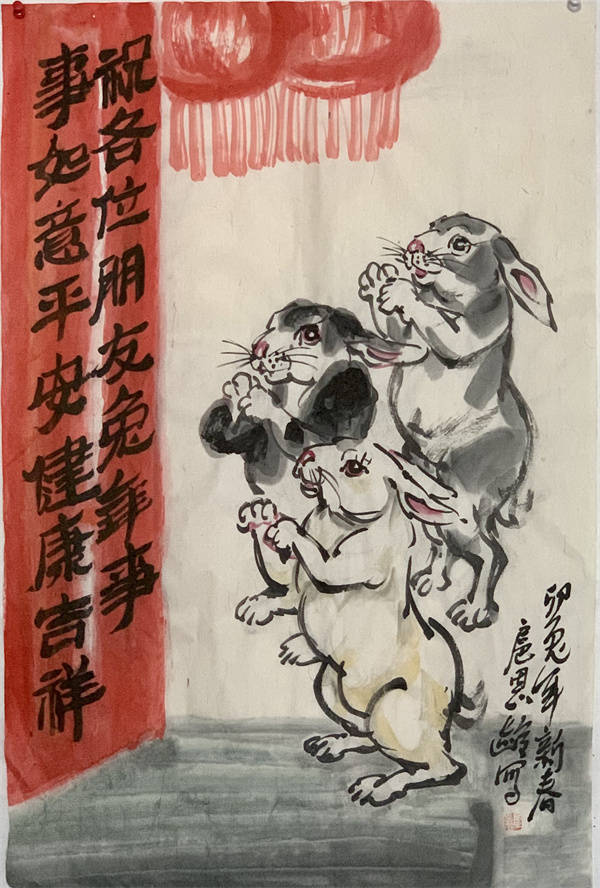 祝各位朋友兔年事
事如意平安健康吉祥
卯兔年新春
写